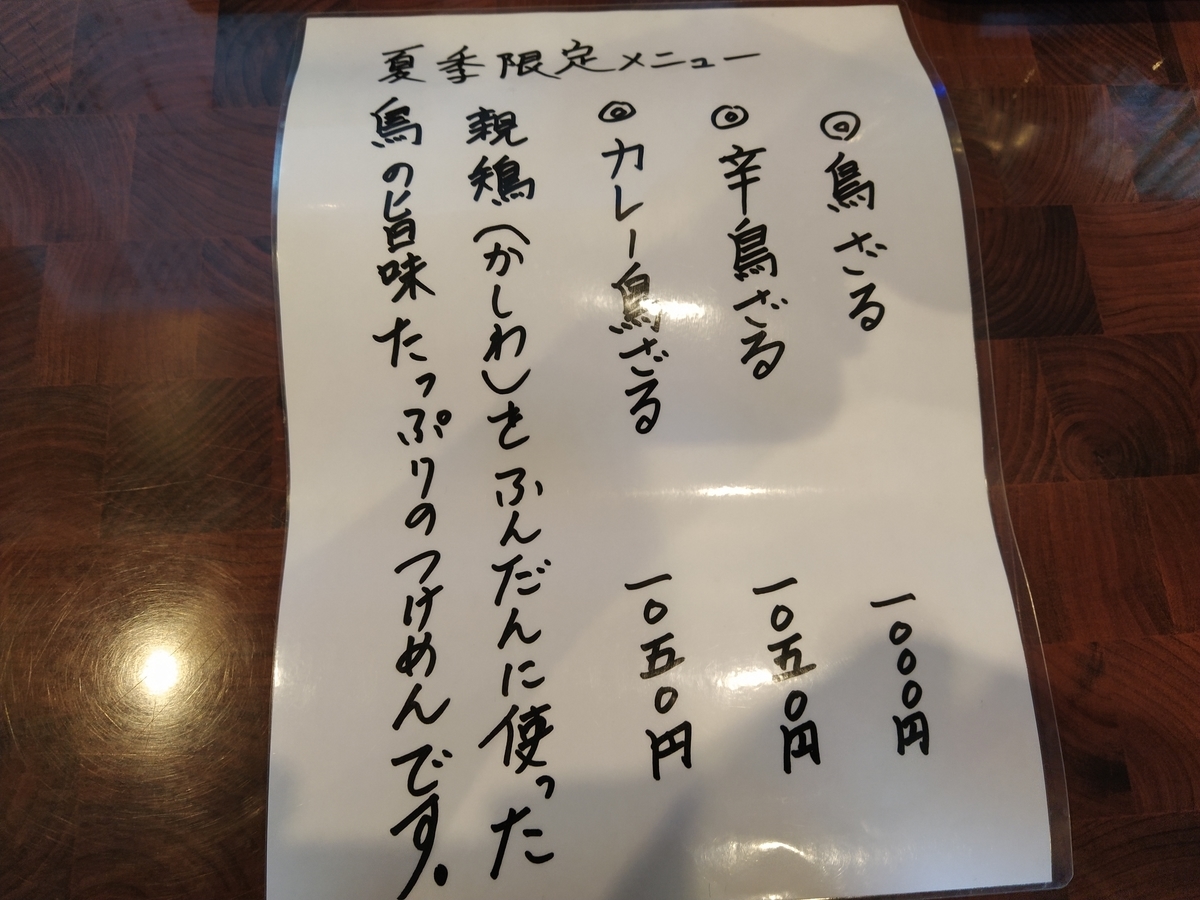 夏季限定メニュー
◎鳥ざる 一〇〇〇円
◎辛鳥ざる 一〇五〇円
◎カレー鳥ざる 一〇五〇円
親鶏(かしわ)をふんだんに使った
鳥の旨味たっぷりのつけめんです。